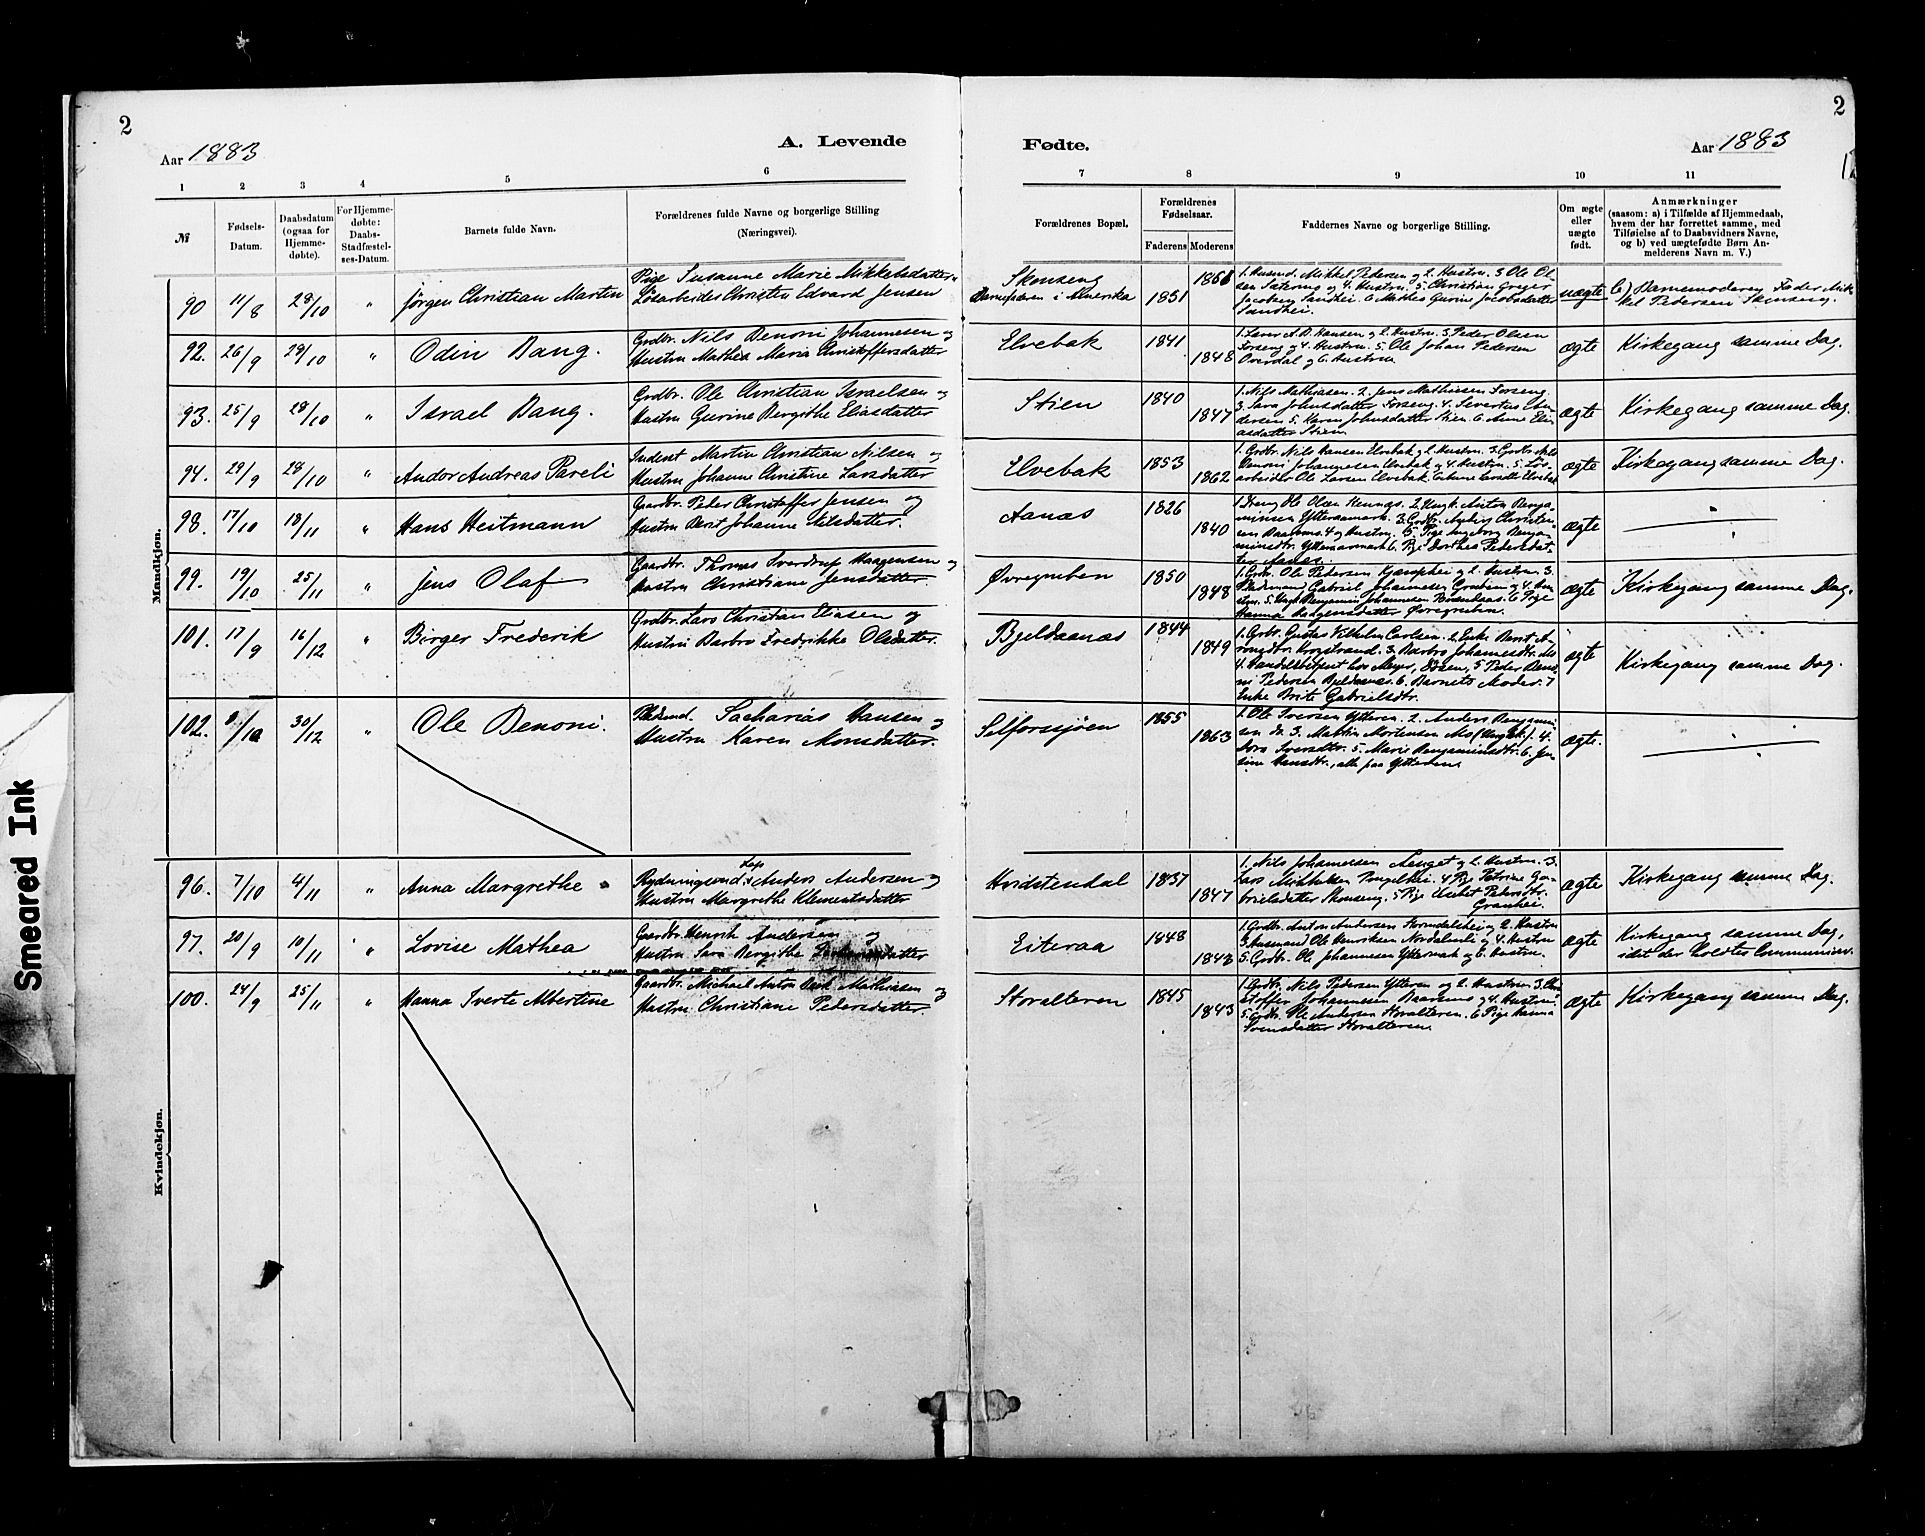 2
2
Aar 1883
A. Levende
Fødte.
Aar 1883
1 2 3 4 5 6 7 8 9 10 11
№
Fødsels-
Datum.
Daabsdatum
(ogsaa for
Hjemme-
døbte).
For Hjemme-
døbte:
Daabs-
Stadfæstel-
ses-Datum.
Barnets fulde Navn.
Forældrenes fulde Navne og borgerlige Stilling
(Næringsvei).
Forældrenes Bopæl.
Forældrenes
Fødselsaar.
Faderens Moderens
Faddernes Navne og borgerlige Stilling.
Om ægte
eller
uægte
født.
Anmærkninger
(saasom: a) i Tilfælde af Hjemmedaab,
hvem der har forrettet samme, med
Tilføielse af to Daabsvidners Navne,
og b) ved uægtefødte Børn An-
melderens Navn m. V.)
Mandkjøn.
90 11/8 28/10 " Jørgen Christian Martin
Pige Susanne Marie Mikkelsdatter
Løsarbeider Christen Edvard Jensen
Skonseng
Barnefaderen i Amerika
1851
1. Husmd. Mikkel Pedersen og 2. Hustru. 3. Ole Ol-
sen og 4. Hustru. 5. Christian Greger
Jacobsen Sandhei. 6. Mathea Gurine Jacobsdatter
Sandhei.
uægte
b) Barnemoderens Fader Mik-
kel Pedersen Skonseng.
92. 26/9 29/10 " Odin Bang.
Grdbr. Nils Benoni Johannesen og
Hustru Mathea Maria Christoffersdatter
Elvebak
1841
1848
1. A. B. Hansen og 2. Hustru. 3. Peder Olsen
Forseng og 4. Hustru. 5. Ole Johan Pedersen
Overdal og 6. Hustru.
ægte
Kirkegang samme Dag.
93. 25/9 28/10 " Israel Bang.
Grdbr. Ole Christian Israelsen og
Hustru Gurine Bergithe Eliasdatter
Stien
1840
1847
1. Nils Mathiasen. 2. Jens Mathiesen Forseng.
3. Sara Johnsdatter Forseng. 4. Sivertus
5. Karen Johnsdatter Stien 6. Anne Eli-
asdatter Stien.
ægte
Kirkegang samme Dag.
94. 29/9 28/10 " Andor Andreas Pareli
Inderst Martin Christian Nilsen og
Hustru Johanne Christine Larsdatter
Elvebak
1853
1862
1. Grdbr. Nils Hansen Elvebak og 2. Hustru. 3. Grdbr. Nils
Benoni Johannesen Elvebak og 4. Hustru. 5. Løs-
arbeider Ole Larsen Elvebak.
ægte
Kirkegang samme Dag.
98. 17/10 18/11 " Hans Heitmann
Gaardbr. Peder Christoffer Jensen og
Hustru Berit Johanne Nilsdatter.
Aanæs
1826
1840
1. Dreng Ole Olsen 2. Ungk. Anton Benja-
minsen 3. Grdbr. Anders Christen-
sen og 4 Hustru. 5. Pige Ingeborg Benja-
minsdtr. 6. Pige Dorthea Pedersdat-
ter Aanæs
ægte
"
99. 19/10 25/11 " Jens Olaf
Gaardbr. Thomas Sverdrup Haagensen og
Hustru Christiane Jensdatter
Øvregruben
1850
1848
1. Grdbr. Ole Pedersen Kjæmphei og 2. Hustru 3.
Gabriel Johannesen Gruben og 4. Hu-
stru. 5. Ungk. Benjamin Johannesen 6. Pige
Hanna Øvregruben.
ægte
Kirkegang samme Dag.
101. 17/9 16/12 " Birger Frederik
Grdbr. Lars Christian Eliasen og
Hustru Barbro Fredrikke Olsdatter.
Bjeldaanæs
1844
1849
1. Grbr. Gustav Vilhelm Carlsen. 2. Enke Berit A-
ronsdtr. Krogstrand. 3. Barbro Johannesdtr. Mo
4. Handelsbetjent Lars Meyer, Ibsen, 5. Peder Beno-
ni Pedersen Bjeldaanæs. 6. Barnets Moder. 7
Enke Brite Gabrielsdtr.
ægte
Kirkegang samme Dag.
102. 9/10 30/12 " Ole Benoni.
Pladsmd. Sacharias Hansen og
Hustru Karen Monsdatter.
Selforssjøen
1855
1863
1. Ole Iversen Ytteren. 2. Anders Benjamin-
sen do. 3. Mathis Mortensen Mo (Ungk.). 4.
Sara Iversdtr. 5. Marie Benjaminsdtr. 6. Jen-
sine Hansdtr., alle paa Ytteren.
ægte.
"
Kvindekjøn.
96. 7/10 4/11 " Anna Margrethe
Lap
Rydningsmd. Anders Andersen og
Hustru Margrethe Klemetsdatter
Hvidstendal
1837
1847
1. Nils Johannesen Lenget og 2. Hustru. 3.
Lars Mikkelsen 4. Pige Petrine Ga-
brielsdatter Skonseng. 5. Pige Elisabet Pedersdtr.
Granhei.
ægte
Kirkegang samme Dag.
97. 20/9 10/11 " Lovise Mathea
Gaardbr. Henrik Andersen og
Hustru Sara Bergithe
Eiteraa
1848
1843
1. Grdbr. Anton Andersen Storndalshei og 2. Hustru
3. Husmand Ole Henriksen Nordalsnli og 4. Hustru
5. Grdbr. Ole Johannesen og 6. Hustru.
ægte
Kirkegang samme Dag,
idet der holdtes Communion.
100. 24/9 25/11 " Hanna Sverte Albertine
Gaardbr. Michael Anton Mathisen og
Hustru Christiane Pedersdatter
Storalteren
1845
1843
1. Grdbr. Nils Pedersen Ytteren og 2. Hustru 3. Chri-
stoffer Johannesen og 4. Hustru.
5. Grdbr. Ole Andersen Storalteren. 6. Pige Hanna
Svensdatter Storalteren.
ægte
Kirkegang samme Dag.
Smeared Ink